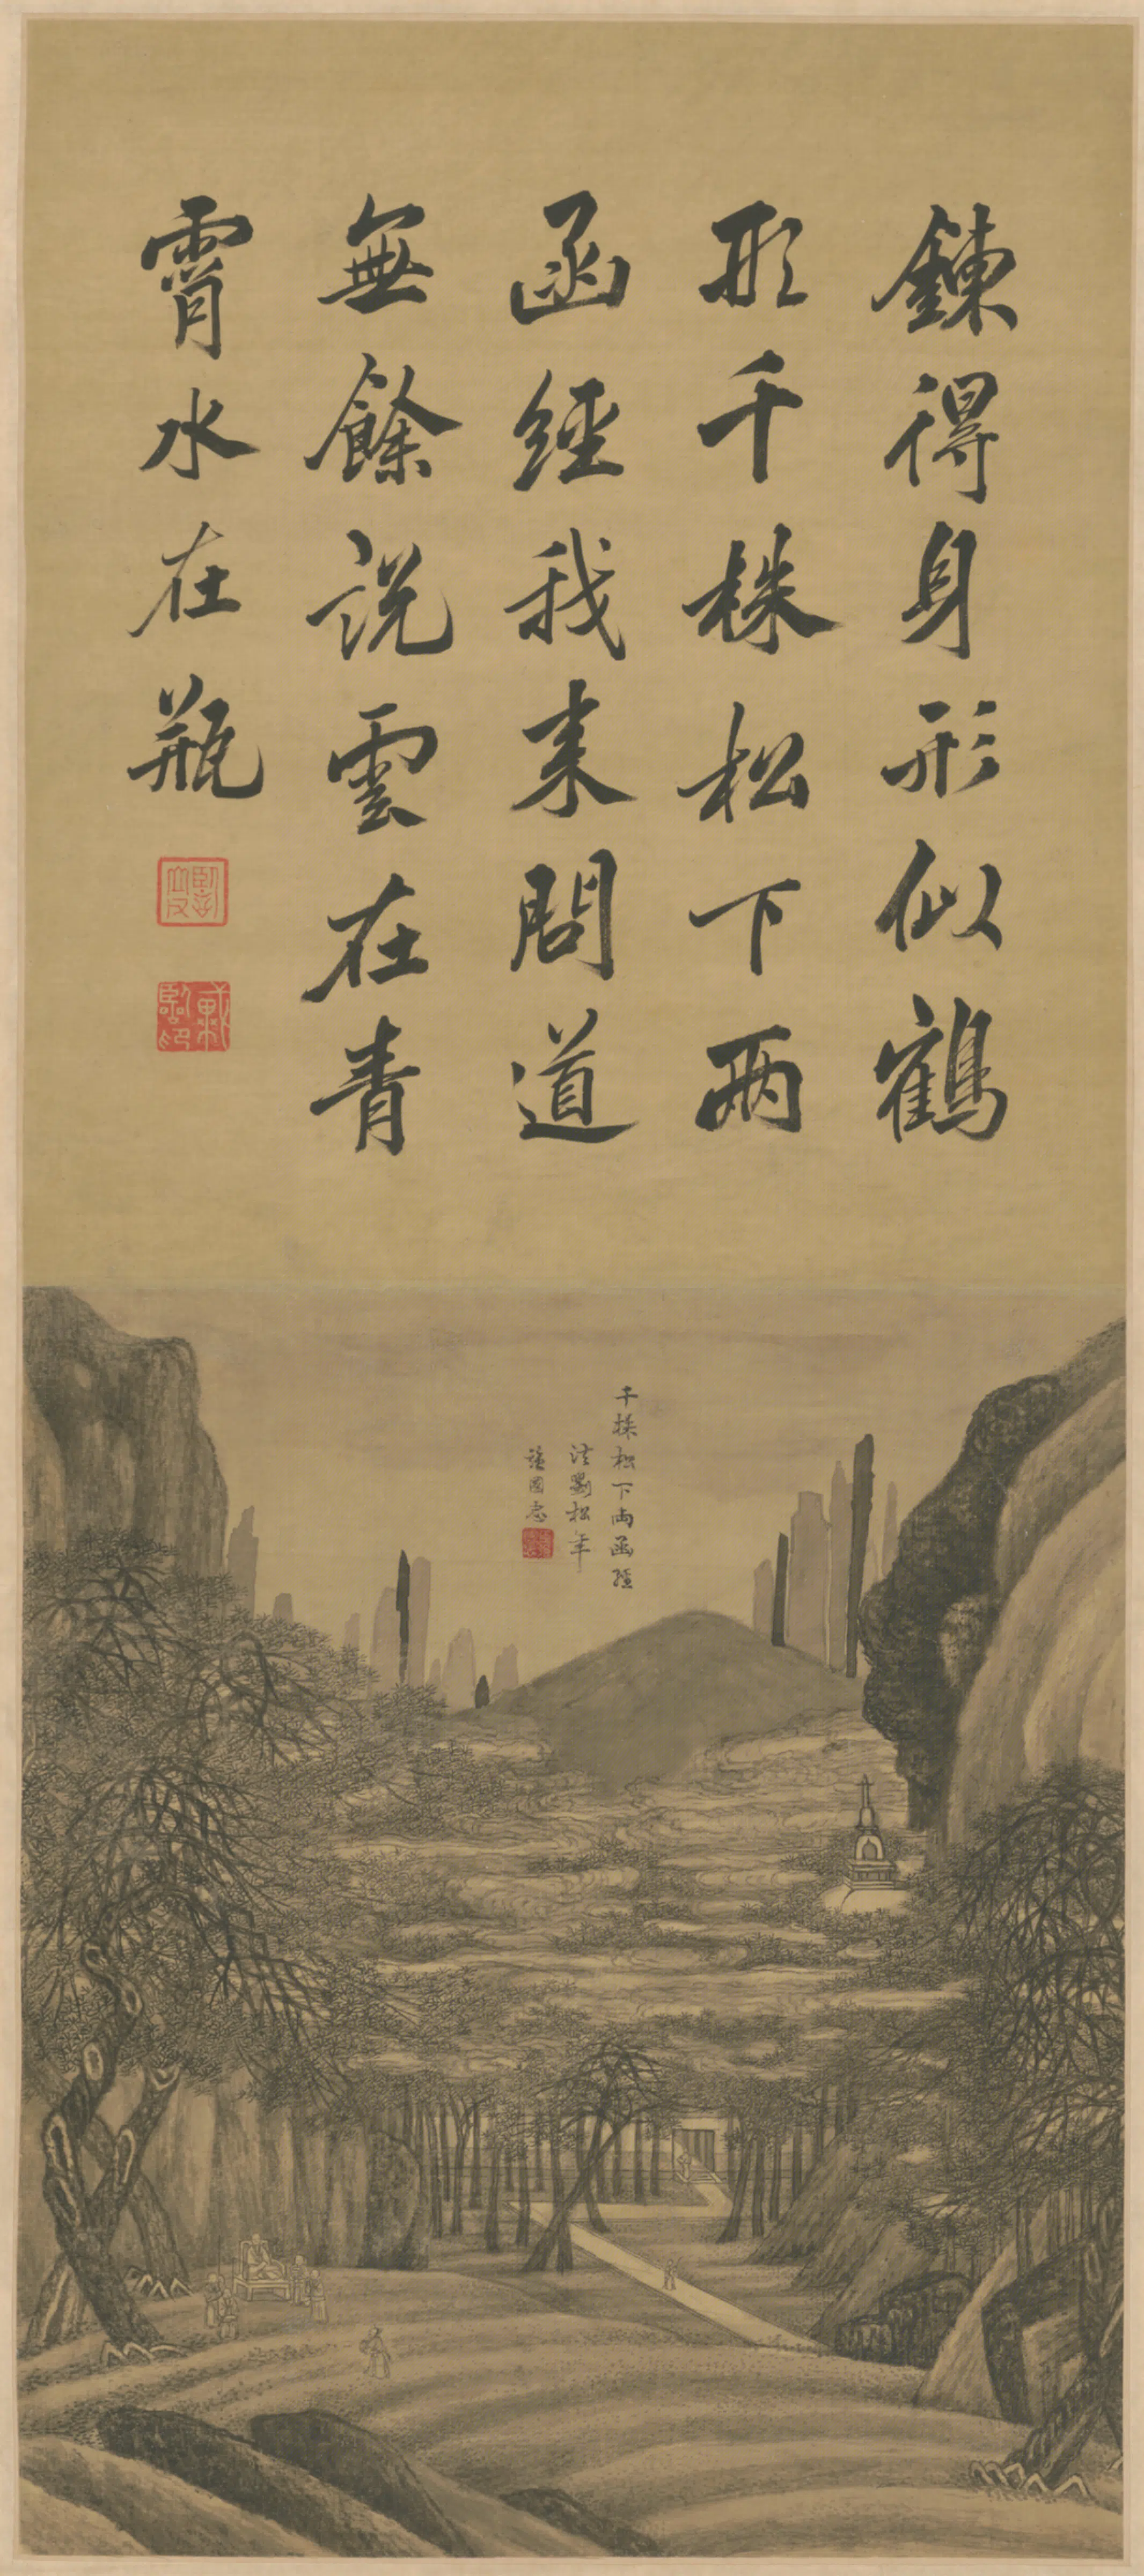 鍊得身形似鶴
形千株松下兩
函經我来問道
無餘説雲在青
霄水在瓶
千株松下兩函經
法劉松年
張國忠